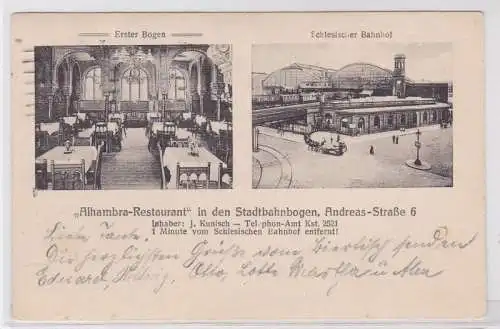 Erster Bogen
Schlesischer Bahnhof
„Alhambra-Restaurant“ in den Stadtbahnbogen, Andreas-Straße 6
Inhaber: J. Kunisch — Telephon-Amt Kst. 2521
1 Minute vom Schlesischen Bahnhof entfernt!
Liebe Tante.
Die herzlichsten Grüße vom Biertisch senden
Eduard, Hedwig, Otto, Lotte Martha u